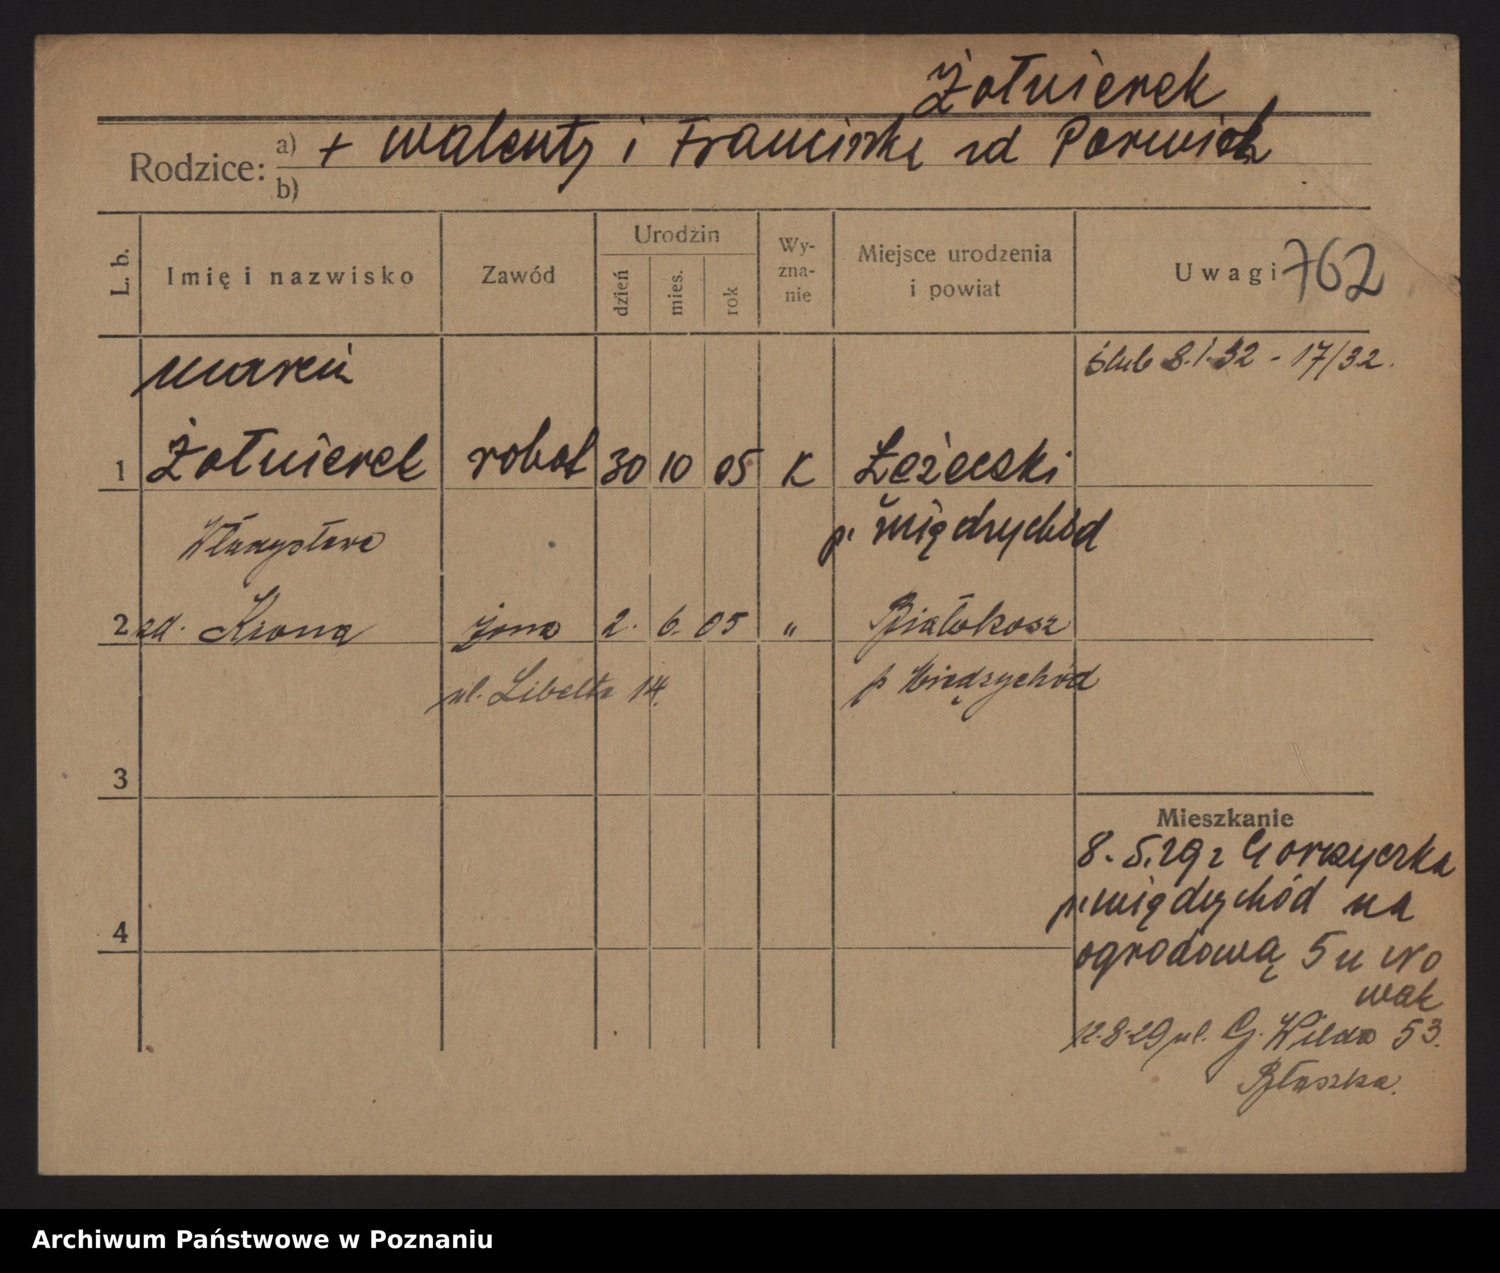 Żołnierek
Rodzice: a) + Walenty i Franciszka zd
b)
L. b. Imię i nazwisko Zawód Urodzin dzień mies. rok Wy-zna-nie Miejsce urodzenia i powiat Uwagi 762
Marcin ślub 8.1.32 - 17/32.
1 Żołnierek robot 30 10 05 K Łężeczki
Władysława p. Międzychód
2 zd. żona 2. 6. 05 " Białokosz
ul. Libelta 14. p Międzychód
3
Mieszkanie
8.5.29 z Gorzyczka
p. Międzychód na
4
ogrodową 5 u No
wak
12.8.29 ul. G. Wilda 53.
Błaszka.
Archiwum Państwowe w Poznaniu